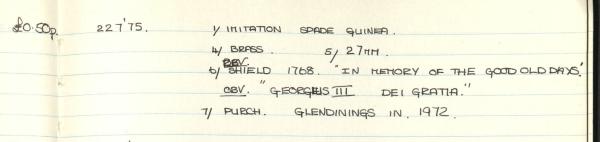 £0.50p. 227'75. 1/ IMITATION SPADE GUINEA.
4/ BRASS. 5/ 27MM.
REV.
6/ SHIELD 1768. "IN MEMORY OF THE GOOD OLD DAYS."
OBV. "GEORGIUS III DEI GRATIA."
7/ PURCH. GLENDININGS IN 1972.